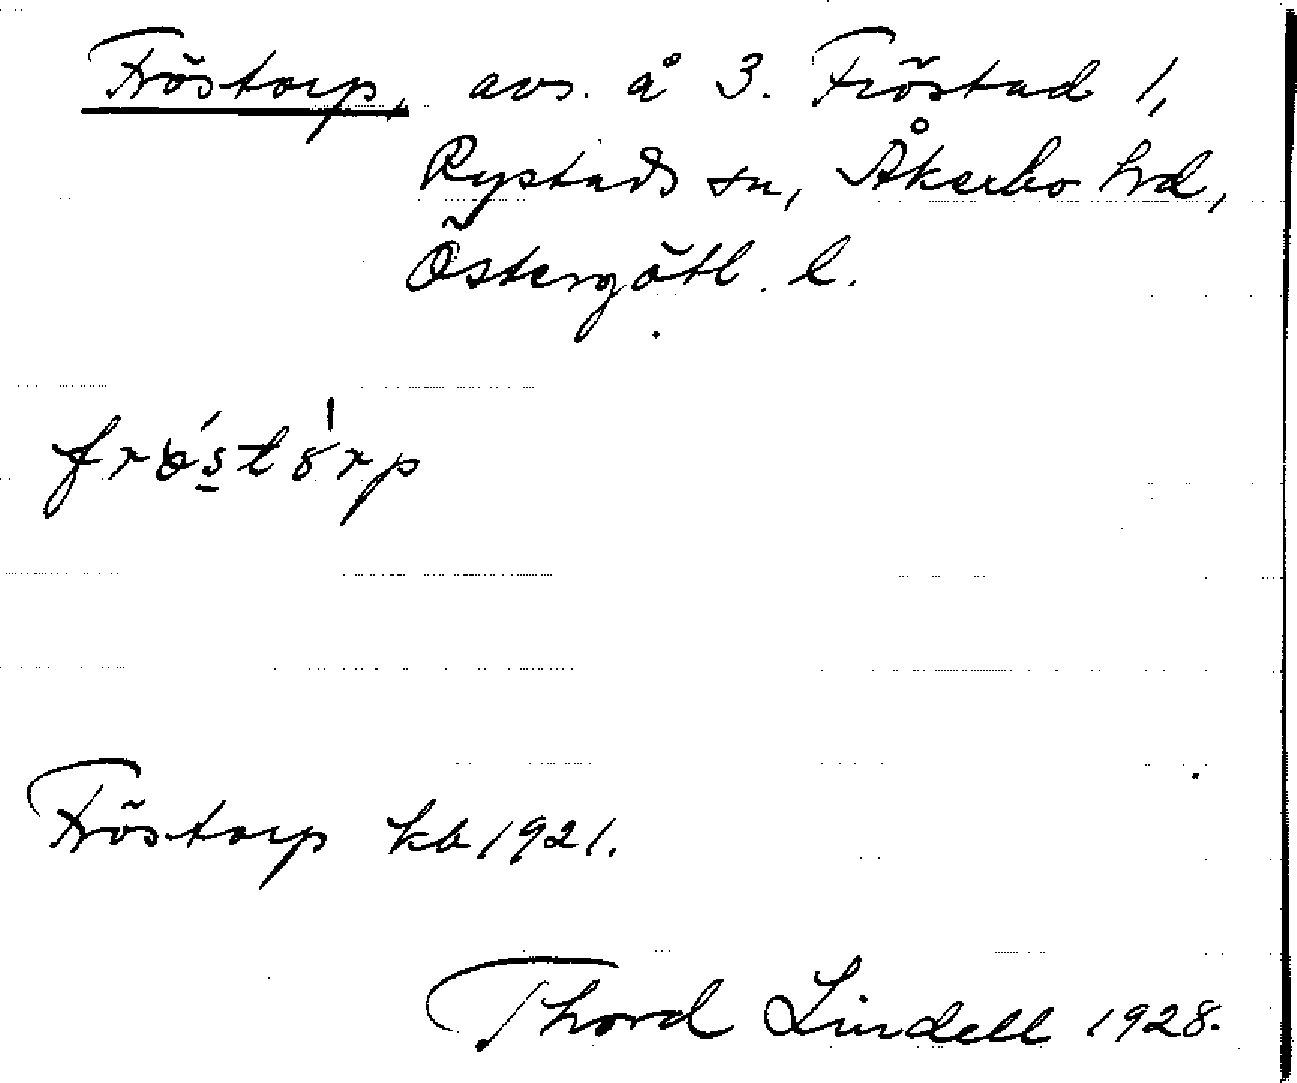 Fröstorp, avs. å 3. Fröstad 1,
Rystads sn, Åkerbo hd,
Östergötl. l.
frøstórp
Fröstorp kb 1921.
Thord Lindell 1928.